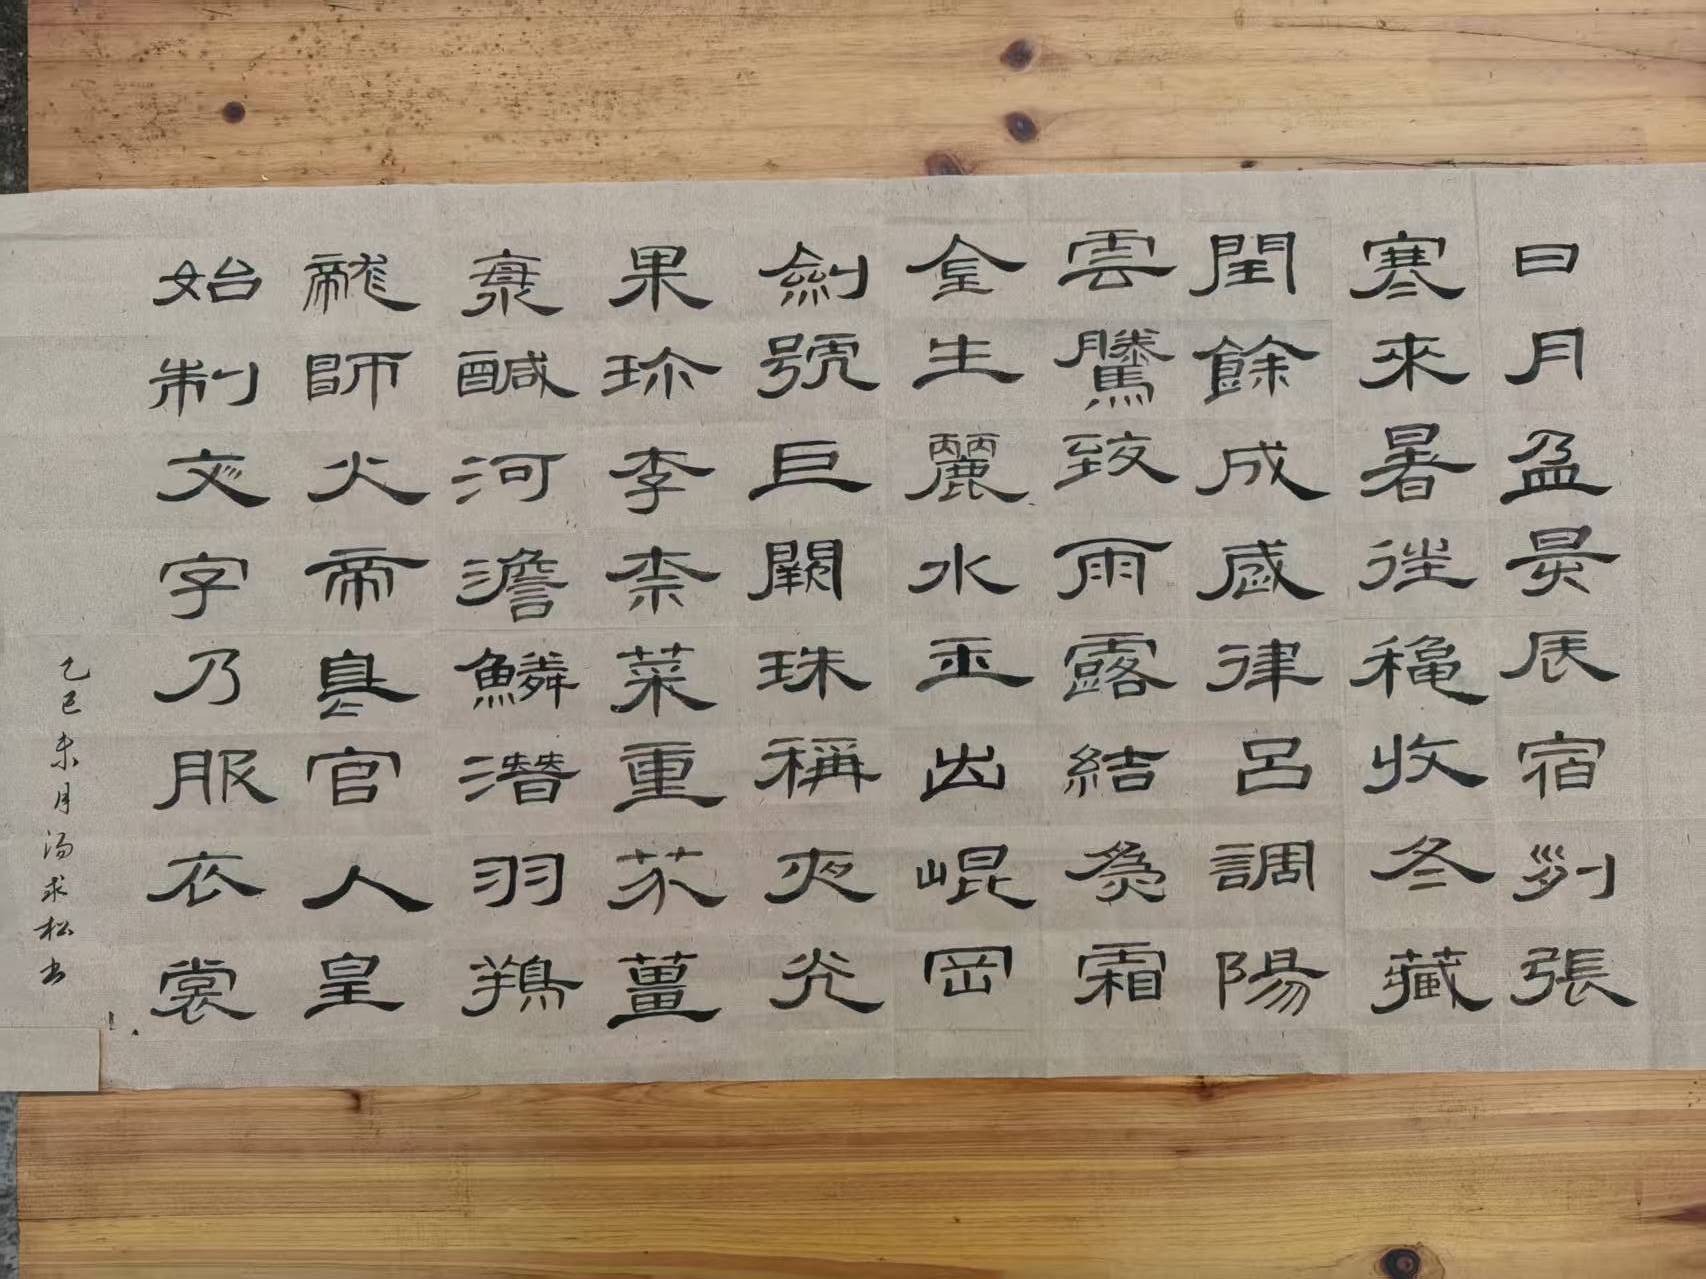 日月盈昃辰宿列張
寒來暑往穐收冬藏
閏餘成歲律呂調陽
雲騰致雨露結為霜
金生麗水玉出崐岡
劍號巨闕珠稱夜光
果珎李柰菜重芥薑
海鹹河澹鱗潛羽翔
龍師火帝鳥官人皇
始制文字乃服衣裳
乙巳未月汤求松书